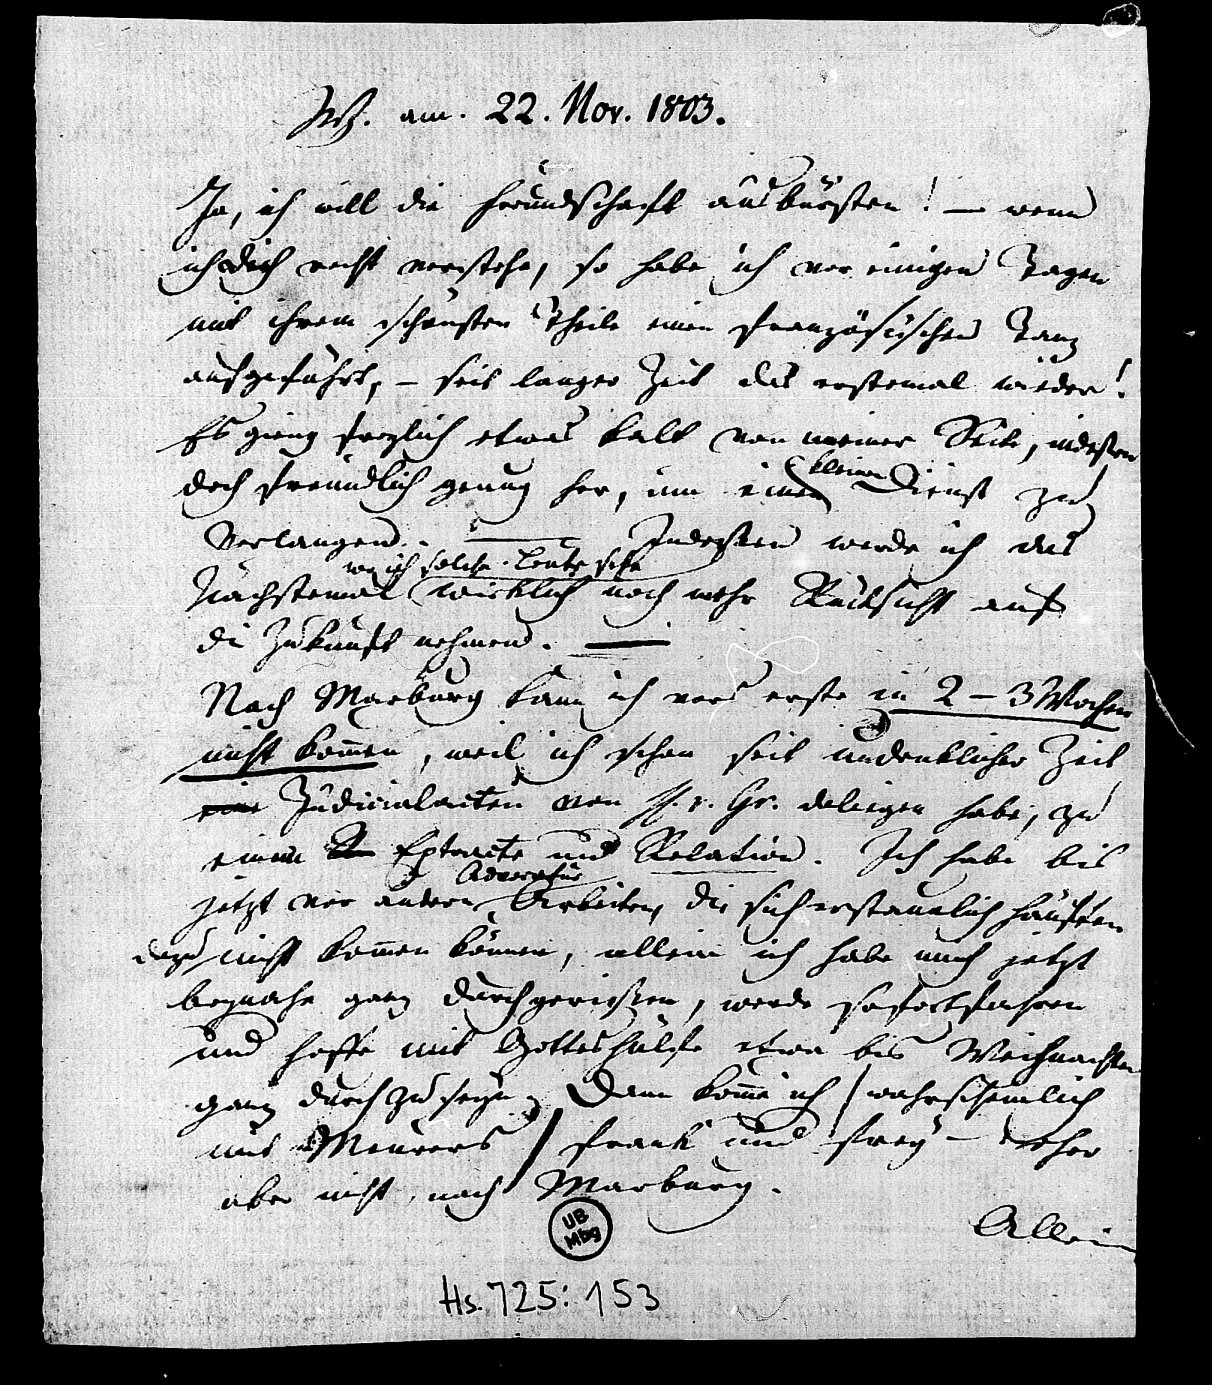 W. am. 22. Nov. 1803.
Ja, ich will die Freundschaft ausbürsten! — wenn
ich dich recht verstehe, so habe ich vor einigen Tagen
mit ihrem schönsten Theile einen französischen Tanz
aufgeführt, – seit langer Zeit das erstemal wieder!
Es gieng freylich etwas kalt von meiner Seite, indessen
doch freundlich genug her, um einen kleinen Dienst zu
verlangen. — Indessen werde ich das
wo ich solche Leute sehe
Nächstemal wirklich noch mehr Rücksicht auf
die Zukunft nehmen. —
Nach Marburg kann ich vors erste in 2 – 3 Wochen
nicht kommen, weil ich schon seit undenklicher Zeit
Judicialacten von Gr. daliegen habe, zu
einem Extracte und Relation. Ich habe bis
Advocatur
jetzt vor andern Arbeiten, die sich erstaunlich häuften
dazu nicht kommen können, allein ich habe mich jetzt
beynahe ganz durchgerissen, werde so fortfahren
und hoffe mit Gottes Hülfe etwa bis Weihnachten
ganz durch zu seyn. Dann komme ich / wahrscheinlich
mit Meurers / frank und frey – eher
aber nicht, nach Marburg.
Allein
UB
Mbg
Hs. 725: 153